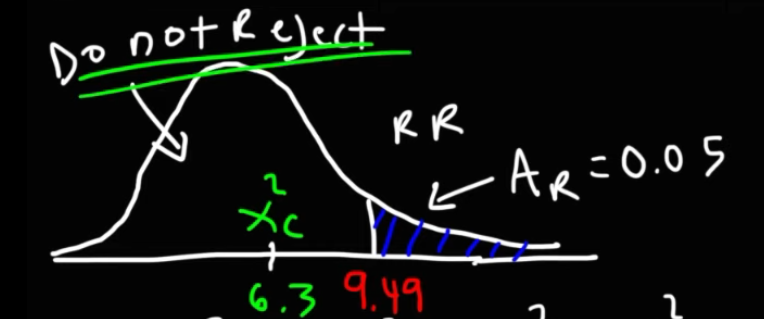 Do not Reject
RR
A_R = 0.05
x²c
6.3 9.49
2 2